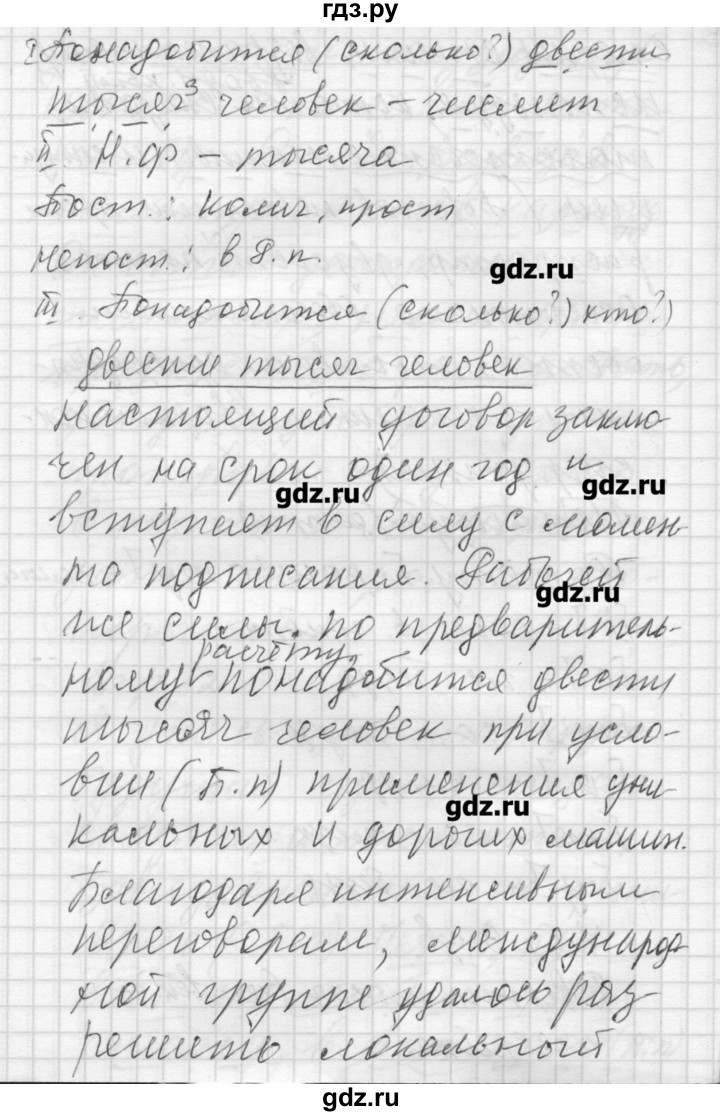 гдз.ру
I Понадобится (сколько?) двести
тысяч³ человек – числит
II. Н.ф – тысяча
Пост.: колич, прост
непост.: в Р.п.
gdz.ru
III. Понадобится (сколько?) кто?)
двести тысяч человек
настоящий договор заклю-
чен на срок один год и
gdz.ru gdz.ru
вступает в силу с момен-
та подписания. Рабочей
gdz.ru
же силы по предваритель-
расчёту,
ному понадобится двести
тысяч человек при усло-
вии (П.п) применения уни
gdz.ru
кальных и дорогих машин.
Благодаря интенсивным
переговорам, международ
ной группе удалось раз
решить локальный
gdz.ru